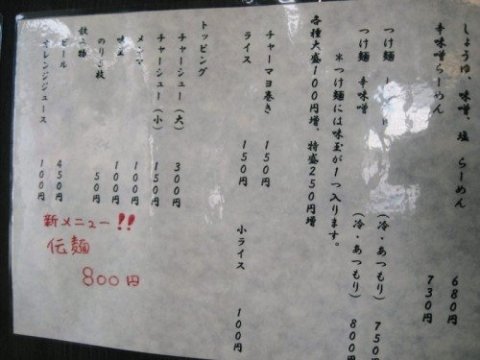 しょうゆ、味噌、塩 らーめん 680円
辛味噌らーめん 730円
つけ麺 (冷・あつもり) 750円
つけ麺 辛味噌 (冷・あつもり) 800円
※つけ麺には味玉が1つ入ります。
各種大盛100円増、特盛250円増
チャーマヨ巻き 150円
ライス 150円 小ライス 100円
トッピング
チャーシュー(大) 300円
チャーシュー(小) 150円
メンマ 100円
味玉 100円
のり5枚 50円
飲み物
ビール 450円
オレンジジュース 100円
新メニュー!!
伝麺
800円